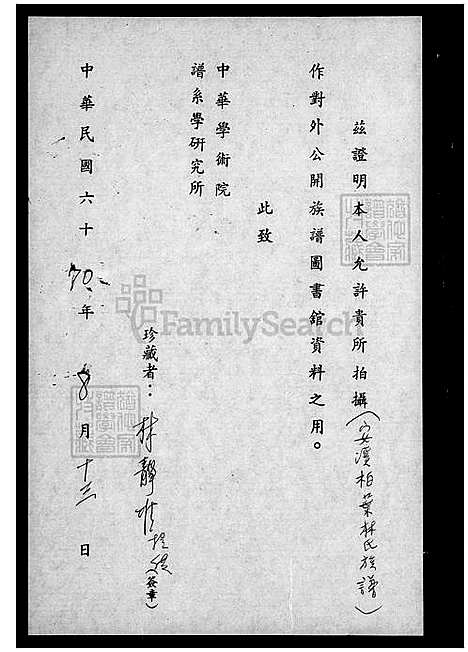 茲證明本人允許貴所拍攝（安溪柏葉林氏族譜）
作對外公開族譜圖書館資料之用。
此致
中華學術院
譜系學研究所
珍藏者：林靜
（簽章）
中華民國六十
70年8月十三日
FamilySearch